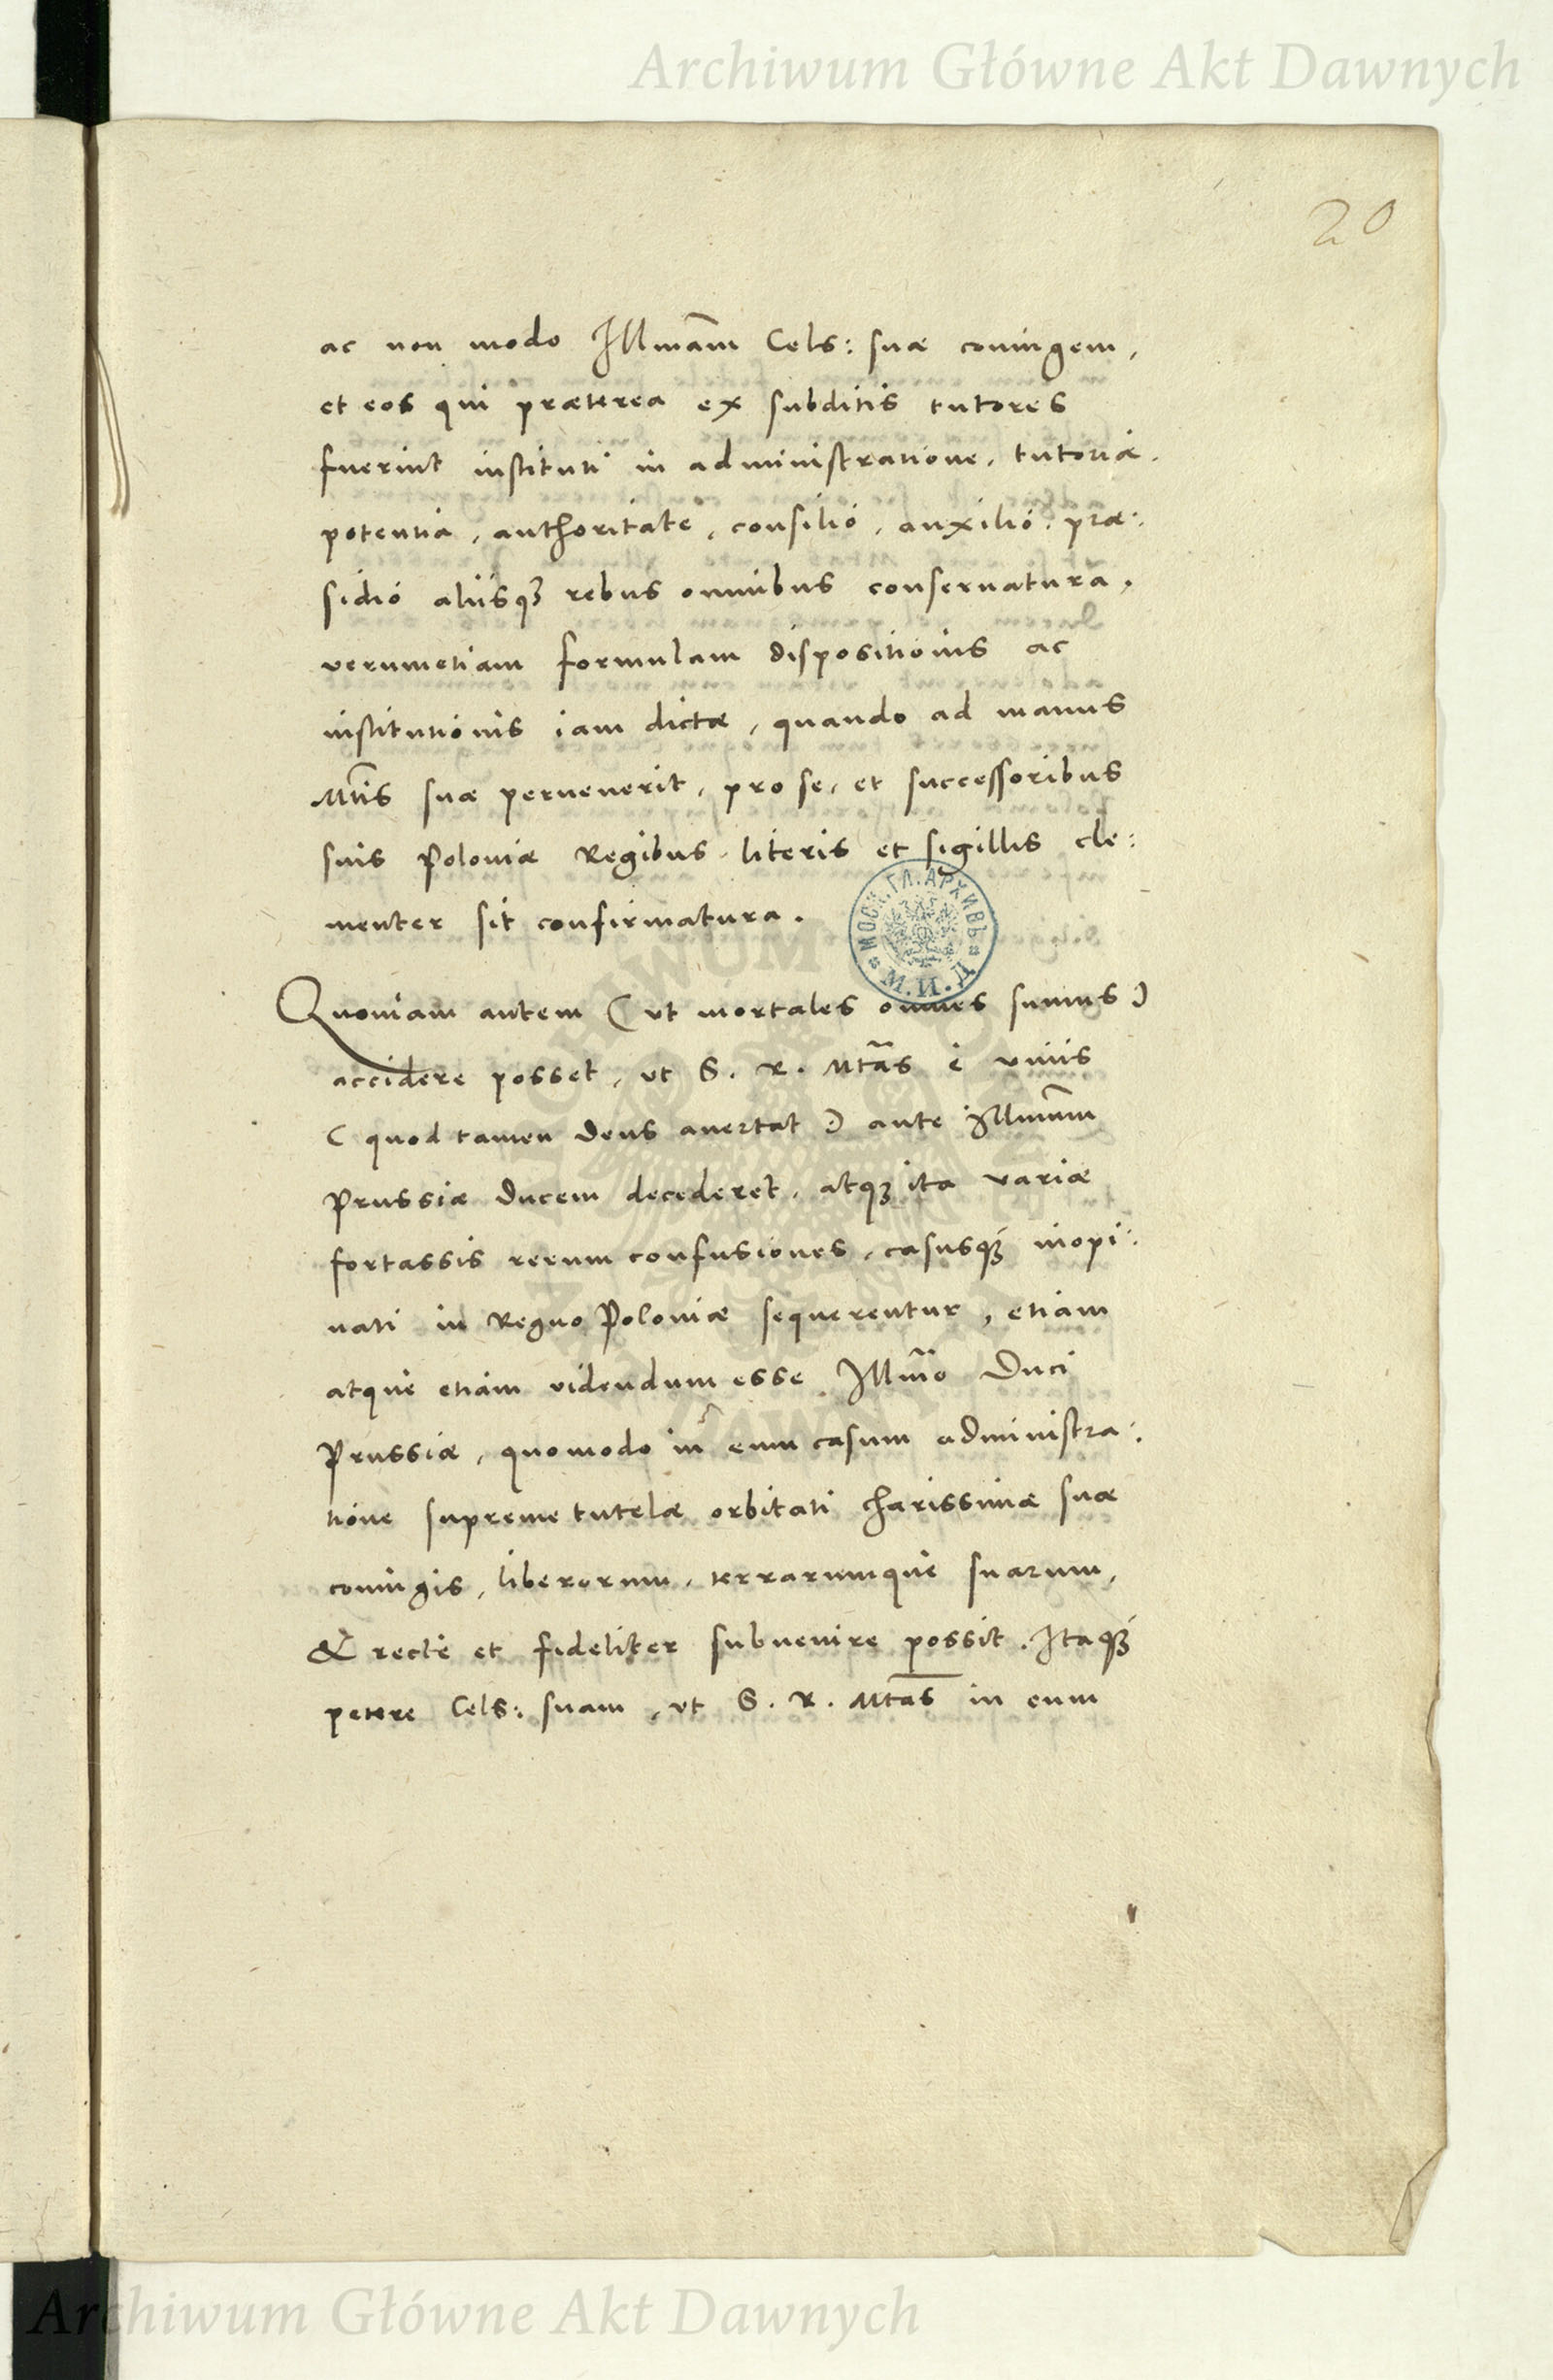 Archiwum Główne Akt Dawnych
20
ac non modo Illmam Cels: suæ coniugem,
et eos qui præterea ex subditis tutores
fuerint instituti in administratione, tutoria,
potentia, authoritate, consilio, auxilio, præ:
sidio aliisq3 rebus omnibus conseruatura,
verumetiam formulam dispositionis ac
institutionis iam dictæ, quando ad manus
Mtis suæ peruenerit, pro se, et successoribus
suis Poloniæ Regibus, literis et sigillis cle:
menter sit confirmatura.
МОСК. ГЛ. АРХИВЪ М. И. Д.
Quoniam autem (ut mortales omnes sumus)
accidere posset, ut S. R. Mtas è viuis
(quod tamen Deus auertat) ante Illmum
Prussiæ Ducem decederet, atq3 ita variæ
fortassis rerum confusiones, casusq3 inopi:
nati in Regno Poloniæ sequerentur, etiam
atque etiam videndum esse Illmo Duci
Prussiæ, quomodo in eum casum administra:
tione supreme tutelæ orbitati charissimæ suæ
coniugis, liberorum, terrarumque suarum,
& recte et fideliter subuenire possit. Itaq3
petere Cels: suam, ut S. R. Mtas in eum
Archiwum Główne Akt Dawnych